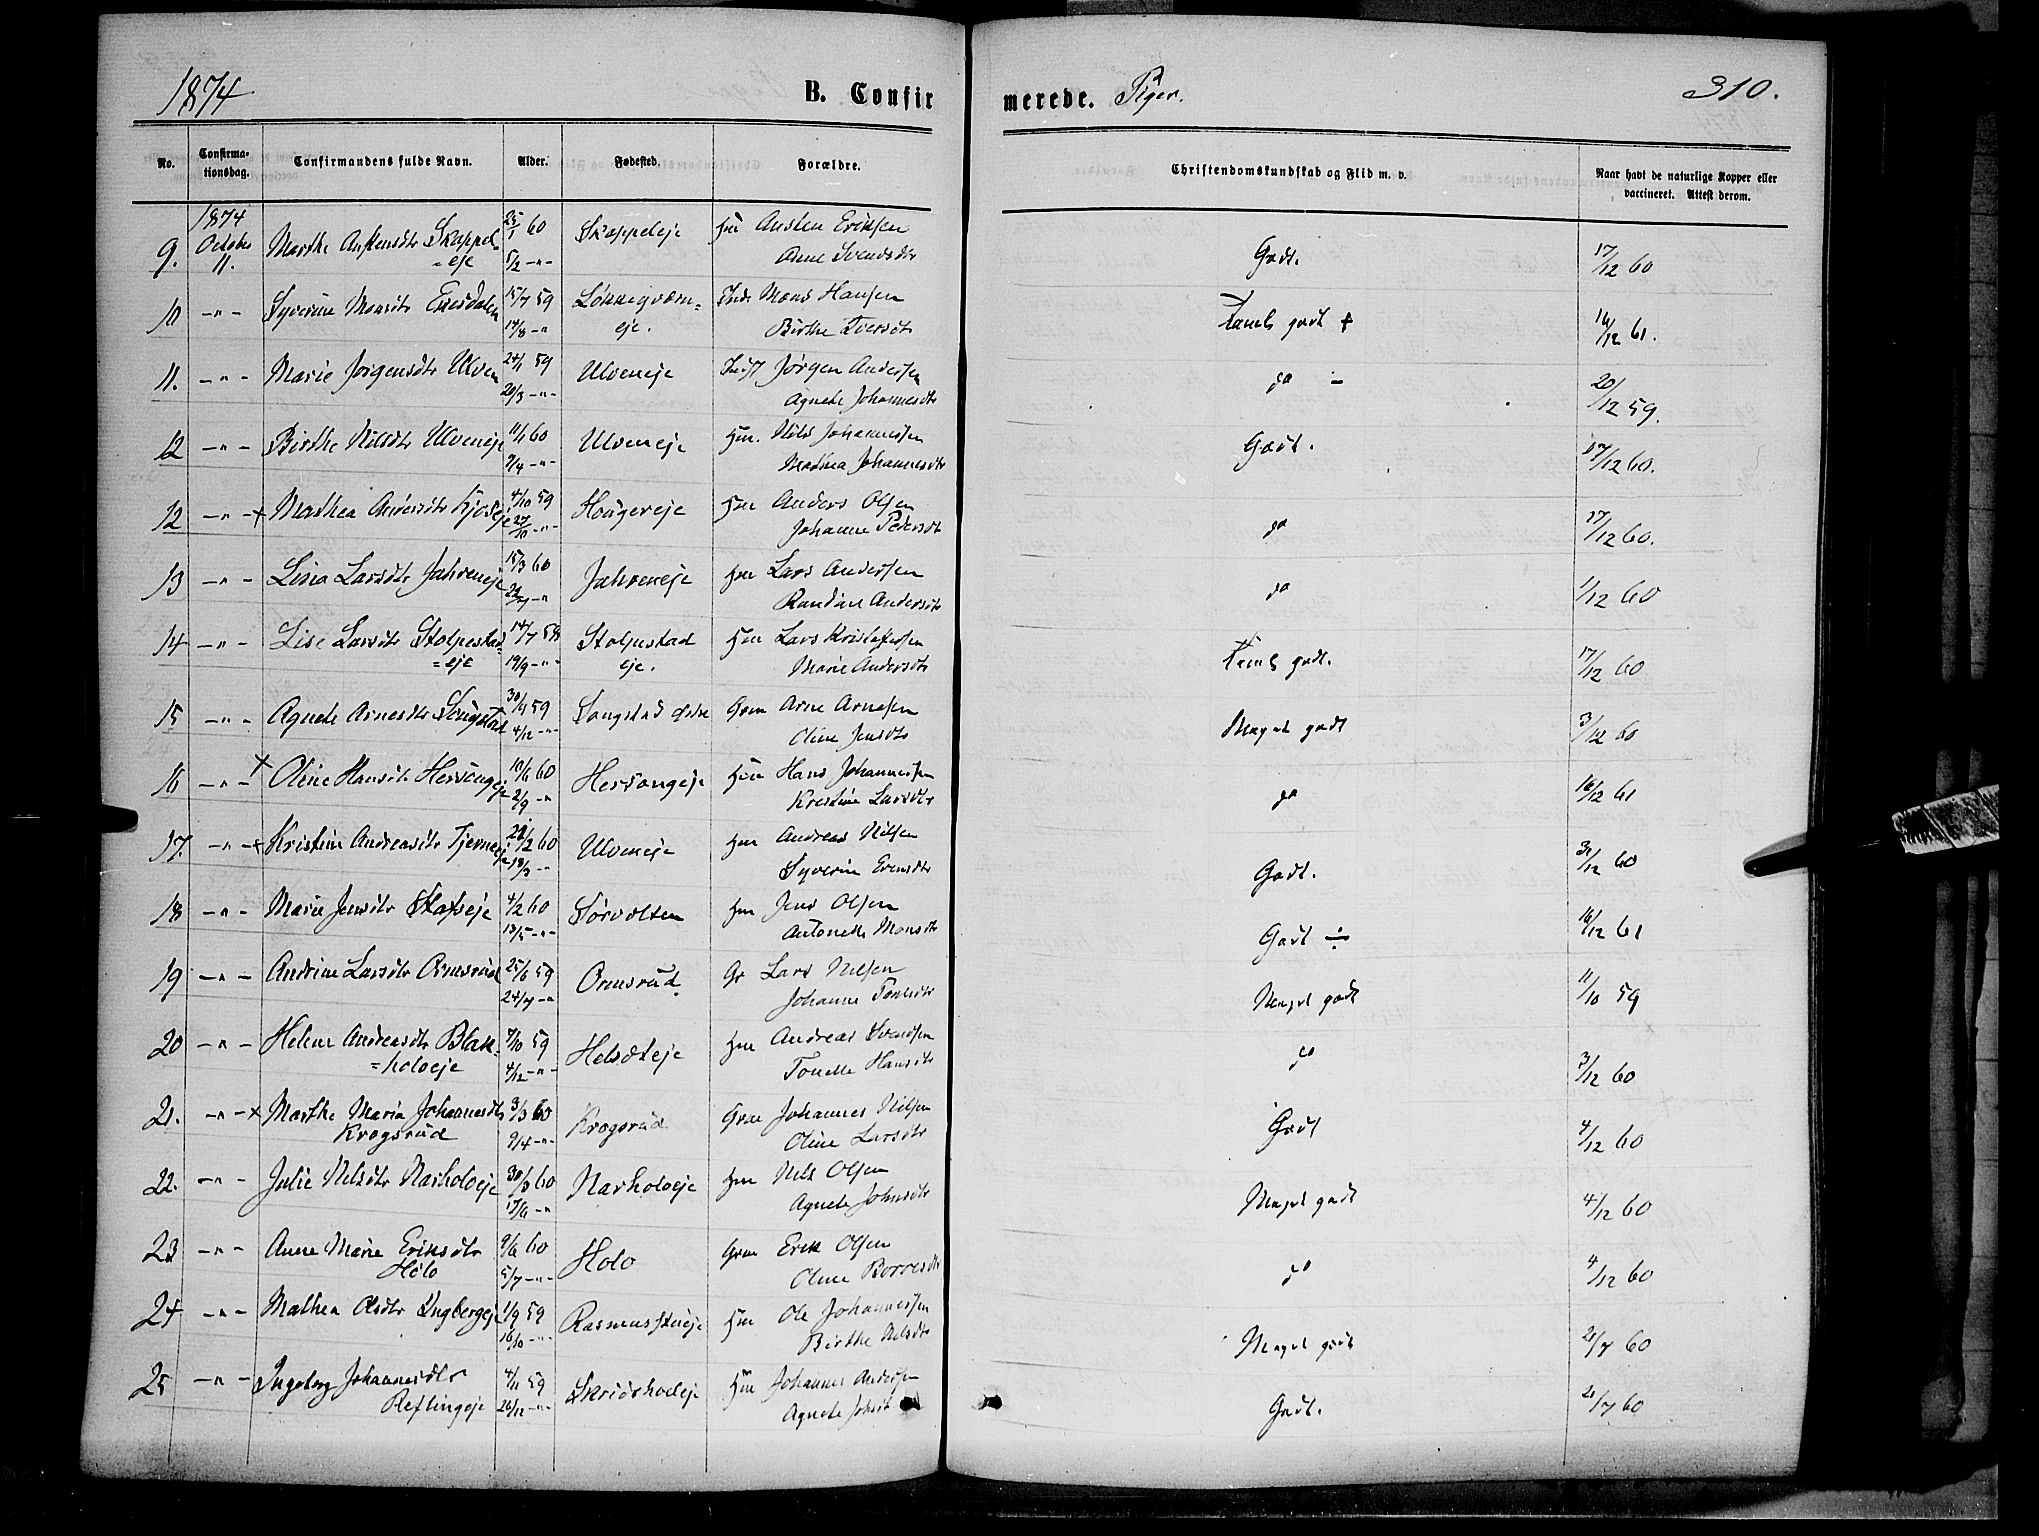 1874
B. Confirmerede. Piger.
310.
No. Confirmationsdag. Confirmandens fulde Navn. Alder. Fødested. Forældre. Christendomskundskab og Flid m. v. Naar havt de naturlige Kopper eller vaccineret. Attest derom.
1874
9. October 11. Marthe Austensdtr Skappel= 25/1 60 Skappeleje Hm Austen Eriksen Godt. 17/12 60
=eje 5/2 -"- Anne Svendsdtr
10 -"- Syverine Monsdtr 15/7 59 Løkkegværn= Inds. Mons Hansen Temml godt + 16/12 61.
14/8 -" eje. Birthe Iversdtr
11. -"- Marie Jørgensdtr Ulven 24/1 59 Ulveneje Inds Jørgen Andersen do - 20/12 59.
20/3 -"- Agnete Johannesdtr
12 -"- Birthe Nilsdtr Ulveneje 11/1 60 Ulveneje Hm. Nils Johannessen Godt. 17/12 60.
9/4 -"- Mathea Johannesdtr
12 -"- + Mathea Andersdtr 4/10 59 Hougereje Hm Anders Olsen do 17/12 60.
27/10 -"- Johanne Pedersdtr
13 -"- Lisa Larsdtr Jahreneje 15/3 60 Jahreneje Hm Lars Andersen do 1/12 60
Randine Andersdtr
14 -"- Lise Larsdtr Stolpestad= 14/7 58 Stolpestad Hm Lars Kristofersen Temml godt. 17/12 60
=eje 19/9 -"- eje. Marie Andersdtr
15 -"- Agnete Arnesdtr Sougstad 59 Sougstad østre Grm Arne Arnesen Meget godt 3/12 60
4/12 -"- Oline Jensdtr
16 -"- + Oline Hansdtr Hersougeje 10/6 60 Hersougeje Hm Hans Johannessen do 16/12 61
2/9 -" Krestine Larsdtr
17. -"- + Kristine Andreasdtr Tjerneje 60 Ulveneje Hm Andreas Nilsen Godt. 60
18/3 -" Syverine Evensdtr
18 -"- Marie Jensdtr 4/2 60 Sørvolten Hm Jens Olsen Godt ÷ 16/12 61
13/5 -"- Antonette Monsdtr
19 -"- Andrine Larsdtr Ormsrud 25/6 59 Ormsrud Gr Lars Nilsen Meget godt 11/10 59
24/7 -" Johanne
20 -"- Helene Andreasdtr Blak= 59 Helsæteje Hm Andreas Svendsen do 3/12 60
=holoeje 4/12 -"- Tonette Hansdtr
21. -"- + Marthe Maria Johannesdtr 3/3 60 Krogsrud Grm Johannes Nilsen Godt 4/12 60
Krogsrud 9/4 -"- Oline Larsdtr
22. -"- Julie Nilsdtr Narholoeje 60 Narholoeje Hm Nils Olsen Meget godt 4/12 60
17/6 -" Agnete Johnsdtr
23 -"- Anne Marie Eriksdtr 60 Holo Grm Erik Olsen do 4/12 60
Holo 5/7 -"- Oline Borresdtr
24 -"- Mathea Olsdtr Ungbergeje 1/9 59 Rasmusstueje Hm Ole Johannessen Meget godt 2/7 60
16/10 -"- Birthe Nilsdtr
25 -"- Ingeborg Johannesdtr 4/11 59 Skridsholeje Hm Johannes Andersen Godt. 2/7 60
Reflingeje 26/12 -"- Agnete